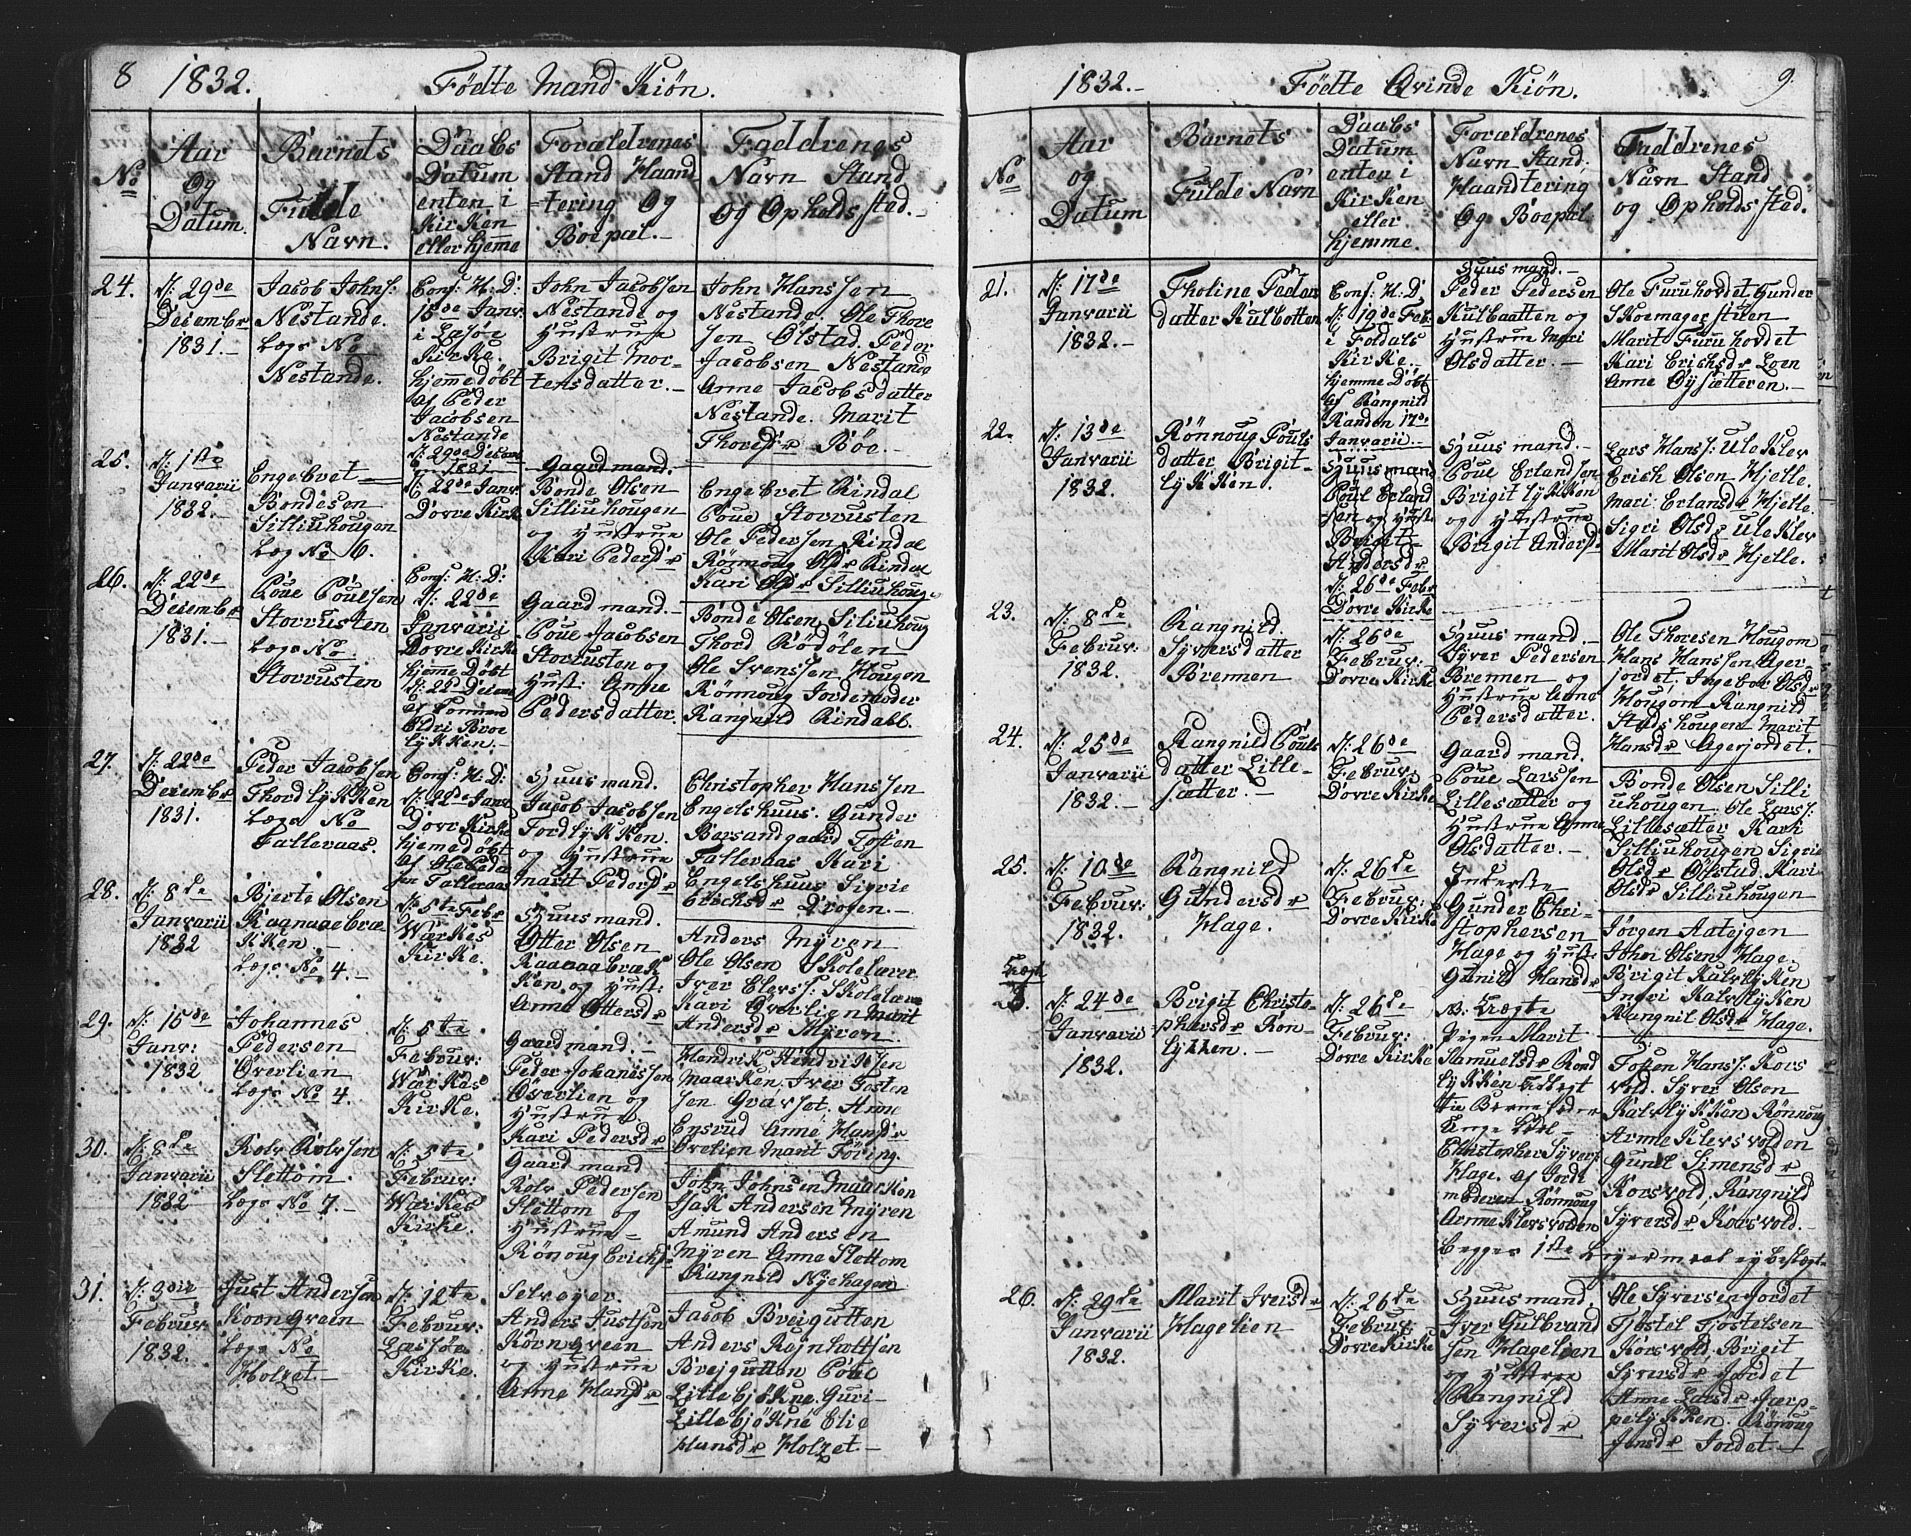 8 1832. Födte Mand Kiön.
No
Aar
Og
Datum.
Barnets
Fulde
Navn.
Daabs
Datum
enten i
Kirken
eller hjemme
Forældrenes
Stand Haand
-tering Og
Boepæl.-
Faddrenes
Navn Stand
Og Opholdssted.-
24.
d: 29de
Decembr
1831.-
Jacob Johns:
Nestande.
Lægs No
Nestande.
Conf: H: D:
15de Janv:
i Læsöe
Kirke.
hjemmedöbt
af Peder
Jacobsen
Nestande
d: 29de Decem
1831
John Jacobsen
Nestande og
Hustrue
Brigit Mor-
tensdatter.-
John Hanssen
Nestande. Ole Thore
sen Olstad. Peder
Jacobsen Nestande
Anne Jacobsdatter
Nestande. Marit
Thoresdr Böe.-
25.
d: 1ste
Janvarii
1832.-
Engebret
Bondesen
Silliuhougen
Læg No 6.
d: 22de Janv:
Dovre Kirke
Gaardmand.
Bonde Olsen
Silliuhougen
og Hustrue
Kari Pedersdr
Engebret Rindal
Poue Storrusten
Ole Pedersen Rindal
Rönnoug Olsdr Rindal
Kari Olsdr Silliuhoug-
26.
d: 22de
Decembr
1831.-
Poue Poulsen
Storrusten
Lægs No.
Storrusten
Conf: H: D:
d: 22de
Janvarii
Dovre Kirke
hjemme Döbt
d: 22 Decem
Eldri Broe
lykken.-
Gaardmand.-
Poue Jacobsen
Storrusten og
Hust: Anne
Pedersdatter.
Bonde Olsen Siliuhoug
Thord Rödölen
Ole Svenssen Hougen
Rönnoug Jordemoder
Rangnild Rindahl.
27.
d: 22de
Decembr
1831.
Peder Jacobsen
Thordlykken
Lægs No
Talleraas.
Conf: H: D:
d: 22 Janv:
Dovre Kirke
hjemedöbt
af Ole Peder
sen Talleraas
Huusmand.
Jacob Jacobsen
Tordlykken.
og Hustrue
Marit Pedersdr
Christopher Hanssen
Engelshuus. Gunder
Bersandgaard Toften
Talleraas Kari
Engelshuus Sigrie
Erichsdr Drogen.-
28.
d: 8de
Janvarii
1832
Bjerte Olsen
Kaanaaebræ
kken.-
Lægs No 4.-
d: 5te Febr
Wærkes
Kirke.
Huusmand.
Otter Olsen
Kaanaabræk
ken og Hust:
Anne Ottersdr
Anders Myren
Ole Olsen Skolelærer
Iver Elerss: Skolelære
Kari Överlien Marit
Andersdr Myren.
29.
d: 15de
Janv:
1832
Johannes
Pedersen
Överlien
Lægs No 4.
d: 5te
Februr:
Wærkes
Kirke.
Gaardmand.-
Peder Johanessen
Överlien og
Hustrue
Kari Pedersdr
Hendrik Hindriksen
Maarken. Iver Josten
sen Qvarset. Anne
Ensrud Anne Hansdr
Örelien Marit Föring.
30.
d: 8de
Janvarii
1832
Rolv Rolvsen
Slettom.
Lægs No 7.-
d: 5te
Februr:
Wærkes
Kirke.
Gaardmand
Rolv Pedersen
Slettom og
Hustrue-
Rönoug Erichs
John Johnsen Maarken
Isak Andersen Myren
Amund Andersen
Myren Anne Slettom
Rangnild Nyehagen
31.
d: 3die
Februr
1832.
Just Andersen
Korngreen
Lægs No
Holzet-
d: 12te.
Februr:
Læsöe
Kirke.
Selveyer.
Anders Justsen
Körngreen
og Hustrue
Anne Hansdr
Jacob Breigutten
Anders Rejnholtsen
Brejgutten Poue
Lillebjökne. Guri-
Lillebjökne Elie
Hansdr Holzet-
1832.- Födte Qvinde Kiön. 9.
No
Aar
og
Datum
Barnets
Fulde Navn
Daabs
Datum
enten i
Kirken
eller
hjemme.
Forældrenes
Navn Stand.
Haandtering
Og Boepæl.
Faddrenes
Navn Stand
og Opholdsted.
21.
d: 17de
Janvarii
1832.-
Tholine Peder
datter Kulbotten
Conf: H: D
d: 19de Feb:
i Foldals
Kirke.
hjemme Döbt
af Rangnild
Randen 17de
Janvarii.
Huusmand.-
Peder Pedersen
Kulbaatten og
Hustrue Mari
Olsdatter.-
Ole Furuhovdet Gunder
Skoemagerstuen
Marit Furuhovdet
Kari Erichsdr Loen
Anne Öysætteren.-
22.
d: 13de
Janvarii
1832.
Rönnoug Pouls
datter Brigit-
lykken.
Huusmand
Poul Erland
sen og Hust
Brigit
d: 26de Febr
Dovre Kirke
Huusmand.-
Poue Erlandsen
Brigitlykken
og Hustrue
Brigit Andersd:
Lars Hanss: Uleklev
Erich Olsen Hjelle.
Mari Erlandsdr Hjelle
Sigri Olsdr Uleklev
Marit Olsdr Hjelle.
23.
d: 8de
Februr:
1832.
Rangnild
Syversdatter
Brennen
d: 26de
Februr:
Dovre Kirke
Huusmand-
Syver Pedersen
Brennen og
Hustrue Anne
Pedersdatter.
Ole Thoresen Hougom
Hans Hanssen Ager-
jordet, Ingebor Olsdr
Hougom Rangnild
Stadshougen Marit
Hansdr Agerjordet.
24.
d: 25de
Janvarii
1832.-
Rangnild Pouls
datter Lille-
sætter.-
d: 26de
Februr:
Dovre Kirke
Gaardmand.
Poue Larssen
Lillesætter og
Hustrue Anne
Olsdatter.-
Bonde Olsen Silli
uhougen Ole Larss:
Lillesætter Kari
Silliuhougen Sigrie
Olsdr Olstud. Kari
Olsdr Silliuhougen
25.
d: 10de
Februr:
1832.
Rangnild
Gundersdr
Hage.
d: 26de
Februr:
Dovre Kirke
Inderste
Gunder Chri-
stophersen
Hage og Hust:
Gunild Hansdr
Jörgen Aateigen
John Olsen Hage.
Brigit Kalvlykken
Ingri Kalvlykken
Rangnil Olsdr Hage.
Uægte
d: 24de
Janvarii
1832.
Brigit Christo-
phersdr Ron-
lykken.-
d: 26de
Februr:
Dovre Kirke
NB: Uægte
Pigen Marit
Samuelsdr Rond
lykken udlagt
til Barnefader
Unge Karl-
Christopher Syvers
Hage. af Jorde
moderen Rönnoug
Arme Klevsvolden
begges 1ste Leyermaal ey beslægt-
Tosten Hanss: Kors
vold. Syver Olsen
Kalvlykken Rönnoug
Arme Klevsvolden
Gunil Simensdr
Korsvold, Rangnild
Syversdr Korsvold.-
26.
d: 29de
Janvarii
1832.
Marit Iversdr
Hagelien
d: 26de
Februr:
Dovre Kirke
Huusmand
Iver Gulbrand
sen Hagelien
og Hustrue
Rangnild
Syversdr
Ole Syversen Jordet
Tjöstel Tjöstelsen
Korsvold, Brigit
Syversdr Jordet
Anne Larsdr Jærp-
pelykken. Rönoug
Jonsdr Jordet-